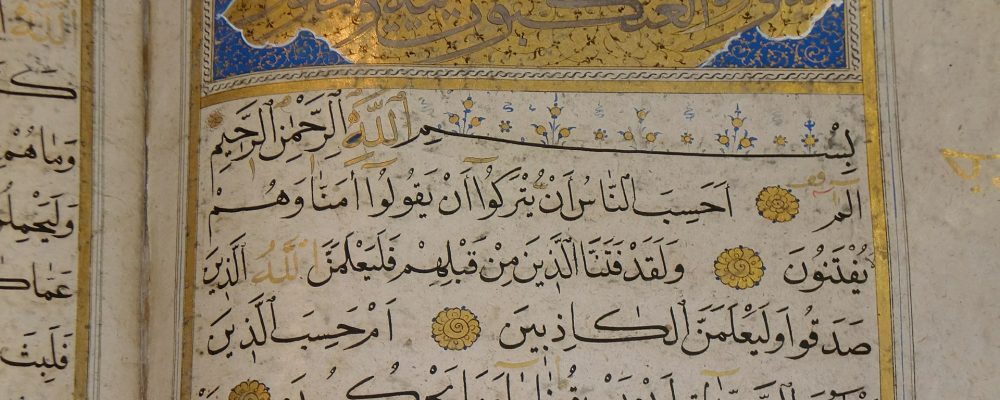 سورة العنكبوت
بِسْمِ اللَّهِ الرَّحْمٰنِ الرَّحِيمِ
الم اَحَسِبَ النَّاسُ اَنْ يُتْرَكُوا اَنْ يَقُولُوا اٰمَنَّا وَهُمْ
يُفْتَنُونَ وَلَقَدْ فَتَنَّا الَّذِينَ مِنْ قَبْلِهِمْ فَلَيَعْلَمَنَّ اللَّهُ الَّذِينَ
صَدَقُوا وَلَيَعْلَمَنَّ الْكَاذِبِينَ اَمْ حَسِبَ الَّذِينَ
اللَّه
وَمَا هُمْ
عَمَّا كَا
فَلَبِثَ